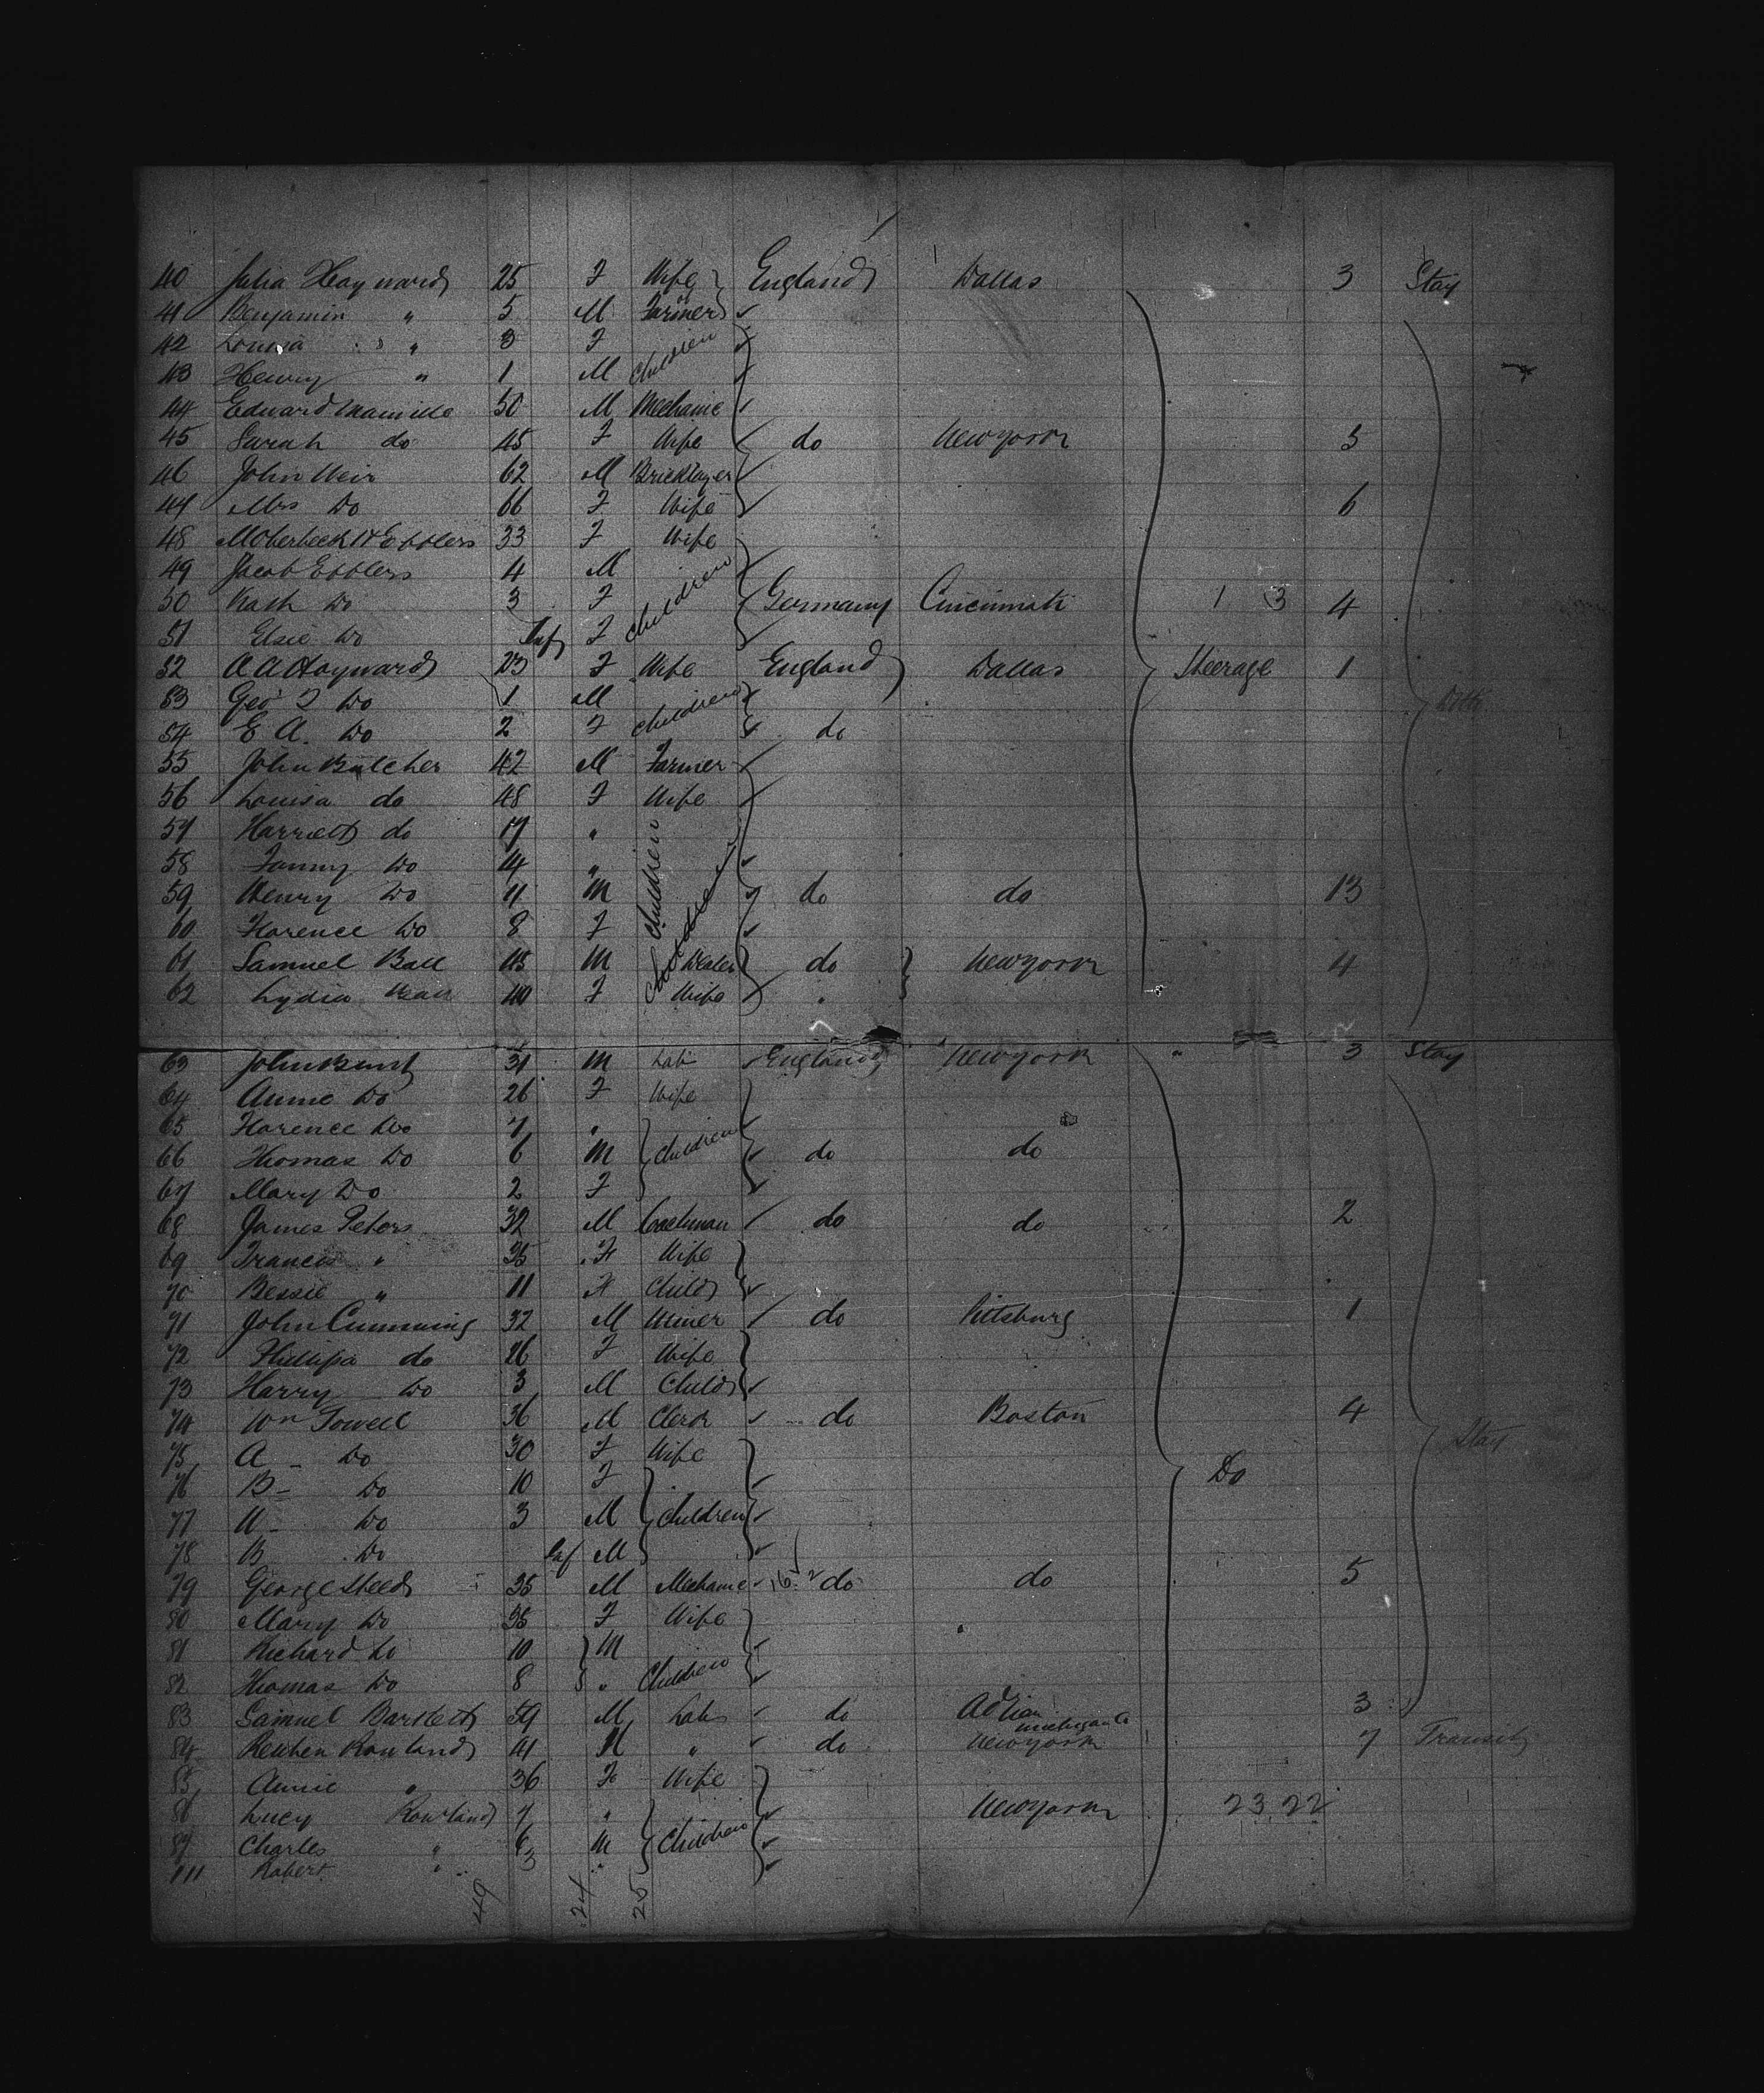 40 Julia Hayward 25 F Wife England Dallas 3 Stay
41 Benjamin " 5 M Farmer
42 Louisa " 3 F Children
43 Henry " 1 M
44 Edward 50 M Mechanic
45 Sarah do 45 F Wife do New york 5
46 John Weir 62 M Bricklayer
47 Mrs Do 66 F Wife 6
48 Ebblers 33 F Wife
49 Jacob Ebblers 4 M Children
50 Kath Do 3 F Germany Cincinnati 1 3 4
51 Elsie Do Inf F
52 A A Hayward 23 F Wife England Dallas Steerage 1
53 Geo Do 1 M Children
54 E A. Do 2 F do
55 John Butcher 42 M Farmer
56 Louisa do 48 F Wife
57 Harriett do 17 "
58 Fanny Do 14 " Children
59 Henry Do 11 M do do 13
60 Florence Do 8 F
61 Samuel Ball 45 M Dealer do New york 4
62 Lydia Ball 40 F Wife "
63 John 31 M Lab England New york " 3 Stay
64 Annie Do 26 F Wife
65 Florence Do 7 "
66 Thomas Do 6 M Children do do
67 Mary Do 2 F
68 James Peters 32 M Coachman do do 2
69 Frances " 35 F Wife
70 Bessie " 11 F Child
71 John Cumming 32 M Miner do Pittsburg 1
72 Phillipa do 26 F Wife
73 Harry Do 3 M Child
74 Wm Towell 36 M Clerk do Boston 4
75 A Do 30 F Wife Stay
76 B Do 10 F Do
77 W Do 3 M Children
78 B Do Inf M
79 George Steed 35 M Mechanic do do 5
80 Mary Do 35 F Wife
81 Richard Do 10 M
82 Thomas Do 8 " Children
83 Samuel Bartlett 59 M Lab do Adrian Michigan 3
84 Reuben Rowland 41 M " do New york 7 Transit
85 Annie " 36 F Wife
86 Lucy Rowland 7 " New york 23 22
87 Charles " 6 M Children
Robert " 3 "
49 24 25